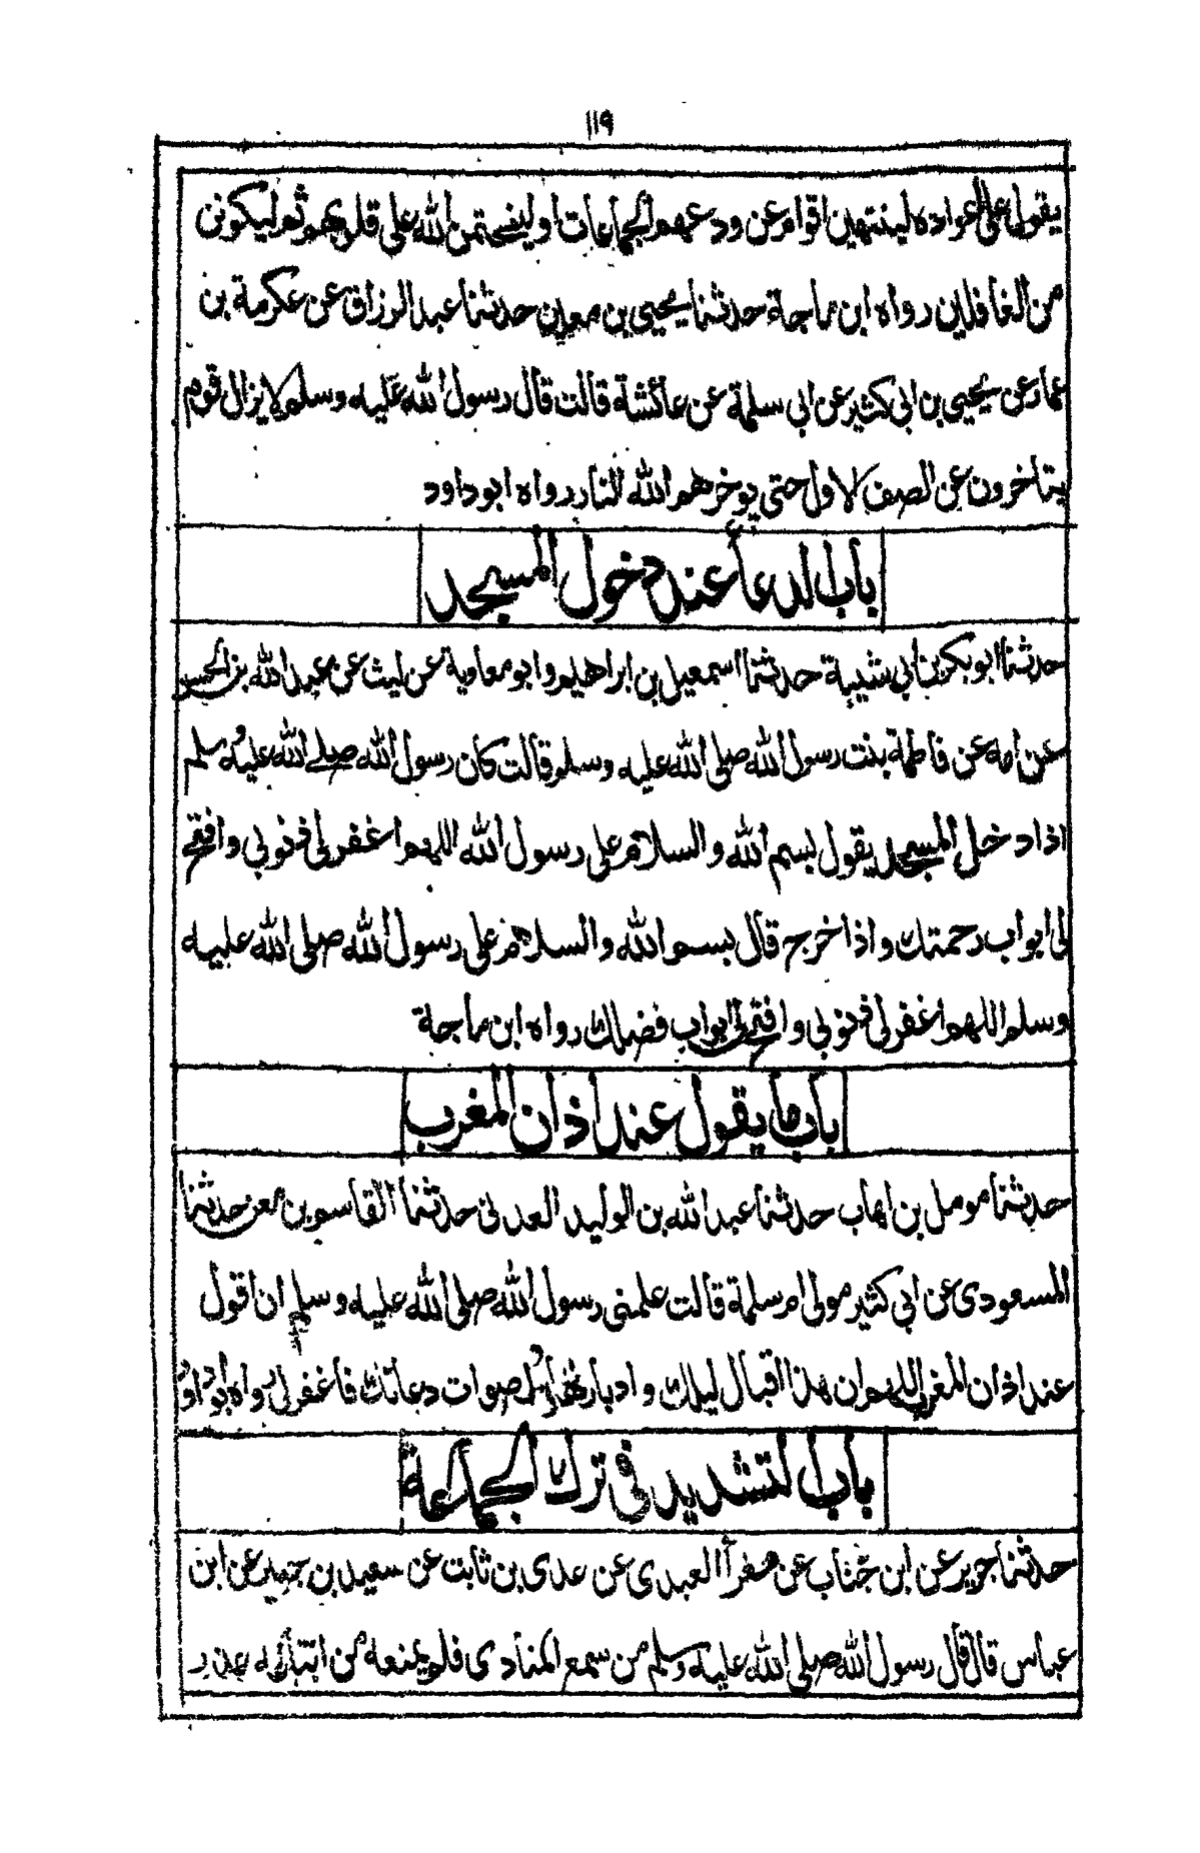 ١١٩
يقول على اعواده لينتهين اقوام عن ودعهم الجماعات او ليختمن الله على قلوبهم ثم ليكونن
من الغافلين رواه ابن ماجة حدثنا يحيى بن معين حدثنا عبد الرزاق عن عكرمة بن
عمار عن يحيى بن ابى كثير عن ابى سلمة عن عائشة قالت قال رسول الله عليه وسلم لا يزال قوم
يتاخرون عن الصف لاول حتى يوخرهم الله النار رواه ابو داود
باب الدعاء عند دخول المسجد
حدثنا ابو بكر بن ابى شيبة حدثنا اسمعيل بن ابراهيم وابو معاوية عن ليث عن عبد الله بن الحسن
عن امه عن فاطمة بنت رسول الله صلى الله عليه وسلم قالت كان رسول الله صلے الله عليه وسلم
اذا دخل المسجد يقول بسم الله والسلام على رسول الله اللهم اغفر لى ذنوبى وافتح
لى ابواب رحمتك واذا خرج قال بسم الله والسلام على رسول الله صلى الله عليه
وسلم اللهم اغفر لى ذنوبى وافتح لى ابواب فضلك رواه ابن ماجة
باب ما يقول عند اذان المغرب
حدثنا مومل بن اهاب حدثنا عبد الله بن الوليد العدنى حدثنا القاسم بن معن حدثنا
المسعودى عن ابى كثير مولى ام سلمة قالت علمنى رسول الله صلى الله عليه وسلم ان اقول
عند اذان المغرب اللهم ان هذا اقبال ليلك وادبار نهارك واصوات دعاتك فاغفر لى رواه ابو داود
باب التشديد فى ترك الجماعة
حدثنا جرير عن ابن جناب عن مغرآ العبدى عن عدى بن ثابت عن سعيد بن جبير عن ابن
عباس قال قال رسول الله صلى الله عليه وسلم من سمع المنادى فلم يمنعه من اتباعه عذر